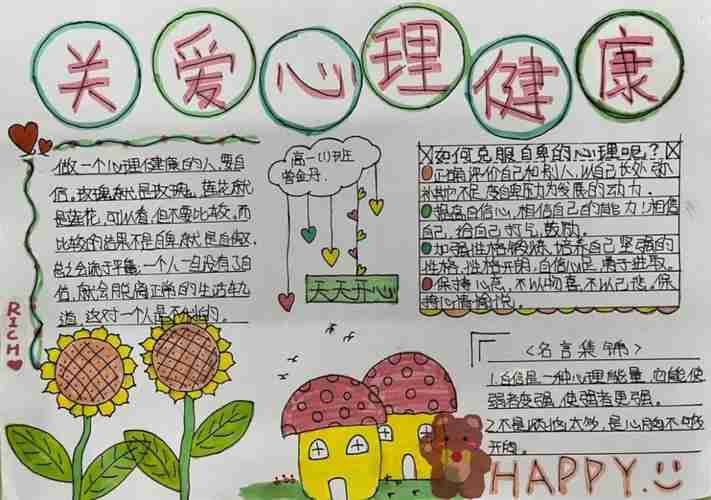 关爱心理健康
做一个心理健康的人要自
信。玫瑰就是玫瑰,莲花就
是莲花,可以看,但不要比较。而
比较的结果不是自卑就是自傲
总之会流于平庸。一个人一旦没有了自
信,就会脱离正常的生活轨
道,这对一个人是不利的。
RICH
高一(1)班
曾金丹
天天开心
如何克服自卑的心理呢?
正确评价自己和别人,以自己长处弥
补地不足,变自卑压力为发展的动力.
提高自信心,相信自己的能力!相信
自己,给自己打气,鼓励.
加强性格锻炼,培养自己坚强的
性格,性格开朗,自信心足,勇于进取.
保持心态,不以物喜,不以己悲,保
持心情愉悦.
<名言集锦>
1.自信是一种心理能量,它能使
弱者变强,使强者更强。
2.不是烦恼太多,是心胸不够
开阔。
HAPPY.